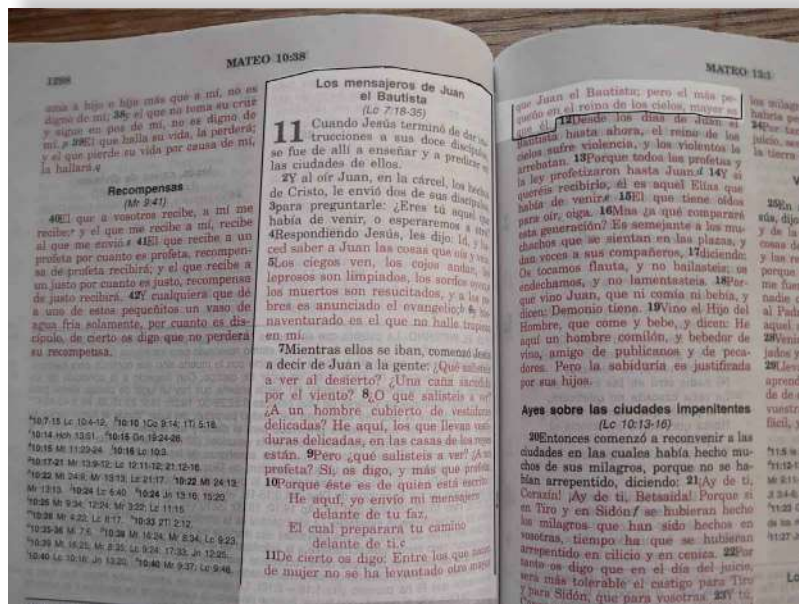 1298
MATEO 10:38
ama a hijo o hija más que a mí, no es
digno de mí; 38y el que no toma su cruz
y sigue en pos de mí, no es digno de
mí. 39El que halla su vida, la perderá;
y el que pierde su vida por causa de mí,
la hallará.
Recompensas
(Mr 9:41)
40El que a vosotros recibe, a mí me
recibe; y el que me recibe a mí, recibe
al que me envió. 41El que recibe a un
profeta por cuanto es profeta, recompen-
sa de profeta recibirá; y el que recibe a
un justo por cuanto es justo, recompensa
de justo recibirá. 42Y cualquiera que dé
a uno de estos pequeñitos un vaso de
agua fría solamente, por cuanto es dis-
cípulo, de cierto os digo que no perderá
su recompensa.
10:7-15 Lc 10:4-12. 10:10 1Co 9:14; 1Ti 5:18.
10:14 Hch 13:51. 10:15 Gn 19:24-28.
10:15 Mt 11:23-24. 10:16 Lc 10:3.
10:17-21 Mr 13:9-12; Lc 12:11-12; 21:12-16.
10:22 Mt 24:9; Mr 13:13; Lc 21:17. 10:22 Mt 24:13;
Mr 13:13. 10:24 Lc 6:40. 10:24 Jn 13:16; 15:20.
10:25 Mt 9:34; 12:24; Mr 3:22; Lc 11:15.
10:26 Mr 4:22; Lc 8:17. 10:33 2Ti 2:12.
10:35-36 Mi 7:6. 10:38 Mt 16:24; Mr 8:34; Lc 9:23.
10:39 Mt 16:25; Mr 8:35; Lc 9:24; 17:33; Jn 12:25.
10:40 Lc 10:16; Jn 13:20. 10:40 Mr 9:37; Lc 9:48.
Los mensajeros de Juan
el Bautista
(Lc 7:18-35)
11 Cuando Jesús terminó de dar ins-
trucciones a sus doce discípulos,
se fue de allí a enseñar y a predicar en
las ciudades de ellos.
2Y al oír Juan, en la cárcel, los hechos
de Cristo, le envió dos de sus discípulos,
3para preguntarle: ¿Eres tú aquel que
había de venir, o esperaremos a otro?
4Respondiendo Jesús, les dijo: Id, y ha-
ced saber a Juan las cosas que oís y veis.
5Los ciegos ven, los cojos andan, los
leprosos son limpiados, los sordos oyen,
los muertos son resucitados, y a los po-
bres es anunciado el evangelio; 6y bie-
naventurado es el que no halle tropiezo
en mí.
7Mientras ellos se iban, comenzó Jesús
a decir de Juan a la gente: ¿Qué salisteis
a ver al desierto? ¿Una caña sacudida
por el viento? 8¿O qué salisteis a ver?
¿A un hombre cubierto de vestiduras
delicadas? He aquí, los que llevan vesti-
duras delicadas, en las casas de los reyes
están. 9Pero ¿qué salisteis a ver? ¿A un
profeta? Sí, os digo, y más que profeta.
10Porque éste es de quien está escrito:
He aquí, yo envío mi mensajero
delante de tu faz,
El cual preparará tu camino
delante de ti.c
11De cierto os digo: Entre los que nacen
de mujer no se ha levantado otro mayor
MATEO 13:1
que Juan el Bautista; pero el más pe-
queño en el reino de los cielos, mayor es
que él. 12Desde los días de Juan el
Bautista hasta ahora, el reino de los
cielos sufre violencia, y los violentos lo
arrebatan. 13Porque todos los profetas y
la ley profetizaron hasta Juan.d 14Y si
queréis recibirlo, él es aquel Elías que
había de venir.e 15El que tiene oídos
para oír, oiga. 16Mas ¿a qué compararé
esta generación? Es semejante a los mu-
chachos que se sientan en las plazas, y
dan voces a sus compañeros, 17diciendo:
Os tocamos flauta, y no bailasteis; os
endechamos, y no lamentasteis. 18Por-
que vino Juan, que ni comía ni bebía, y
dicen: Demonio tiene. 19Vino el Hijo del
Hombre, que come y bebe, y dicen: He
aquí un hombre comilón, y bebedor de
vino, amigo de publicanos y de peca-
dores. Pero la sabiduría es justificada
por sus hijos.
Ayes sobre las ciudades impenitentes
(Lc 10:13-16)
20Entonces comenzó a reconvenir a las
ciudades en las cuales había hecho mu-
chos de sus milagros, porque no se ha-
bían arrepentido, diciendo: 21¡Ay de ti,
Corazín! ¡Ay de ti, Betsaida! Porque si
en Tiro y en Sidónf se hubieran hecho
los milagros que han sido hechos en
vosotras, tiempo ha que se hubieran
arrepentido en cilicio y en ceniza. 22Por
tanto os digo que en el día del juicio,
será más tolerable el castigo para Tiro
y para Sidón, que para vosotras. 23Y tú,